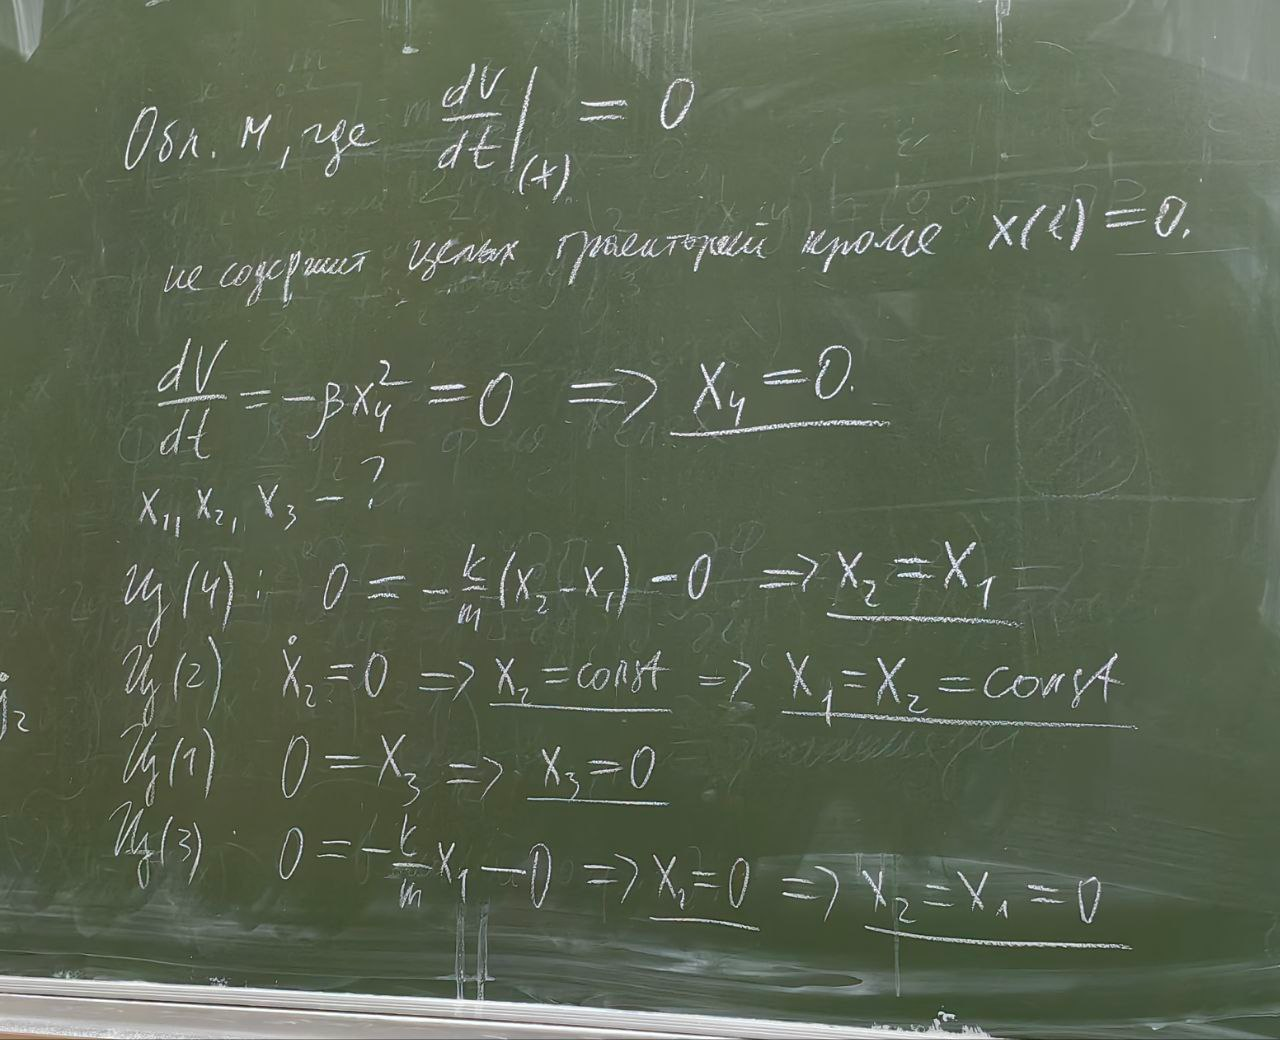 Обл. M, где dV/dt|(*) = 0
не содержит целых траекторий кроме x(t) = 0.
dV/dt = -βx₄² = 0 => x₄ = 0.
x₁, x₂, x₃ - ?
Из (4): 0 = -k/m (x₂ - x₁) - 0 => x₂ = x₁
Из (2) ẋ₂ = 0 => x₂ = const => x₁ = x₂ = const
Из (1) 0 = x₃ => x₃ = 0
Из (3): 0 = -k/m x₁ - 0 => x₁ = 0 => x₂ = x₁ = 0